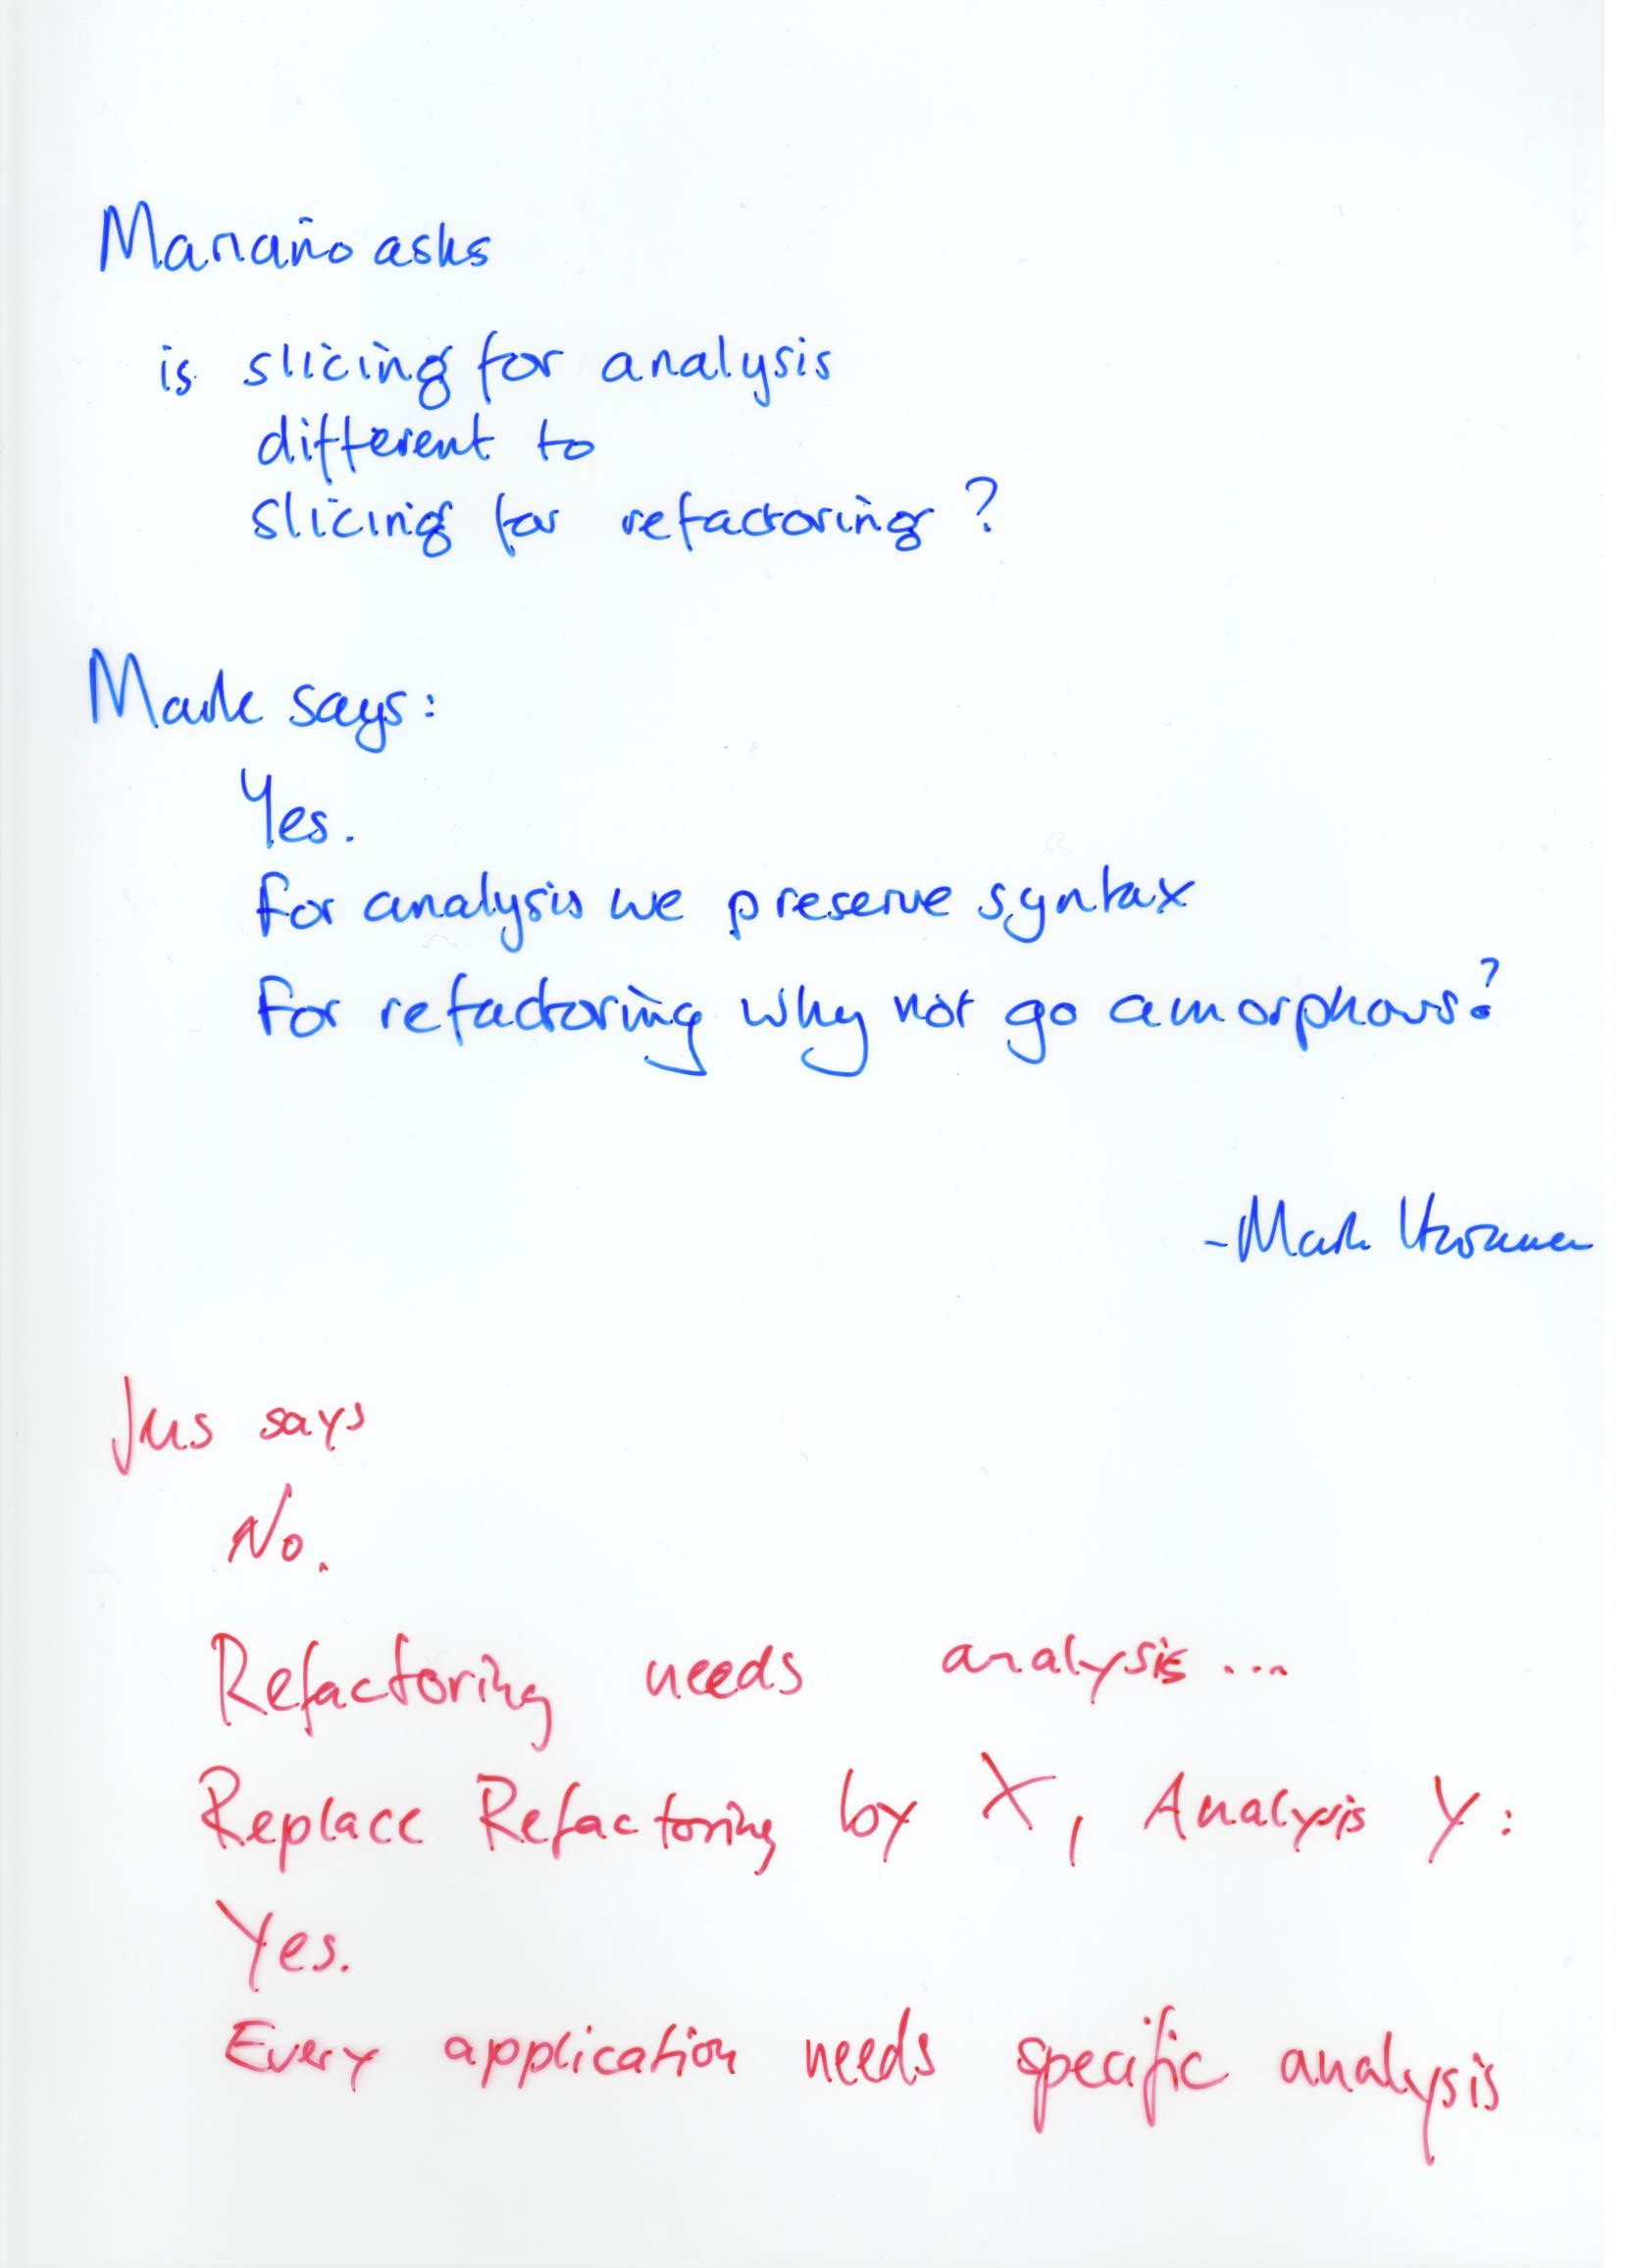 Mariano asks
is slicing for analysis
different to
slicing for refactoring?
Mark says:
Yes.
for analysis we preserve syntax
for refactoring why not go amorphous?
- Mark
Jens says
No.
Refactoring needs analysis...
Replace Refactoring by X, Analysis Y:
Yes.
Every application needs specific analysis